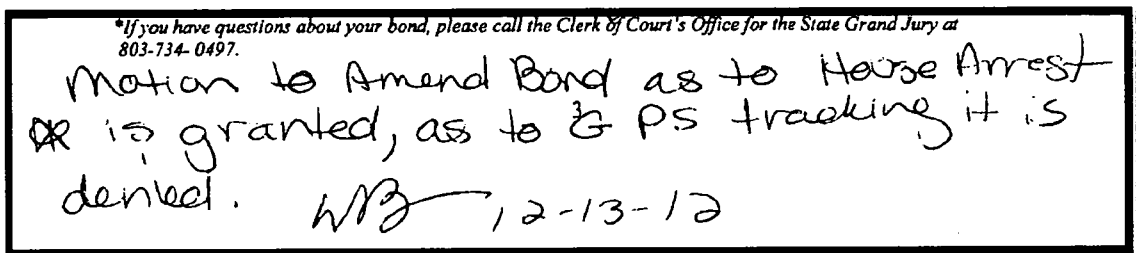 *If you have questions about your bond, please call the Clerk of Court's Office for the State Grand Jury at
803-734-0497.
Motion to Amend Bond as to House Arrest
is granted, as to GPS tracking it is
denied. 12-13-12